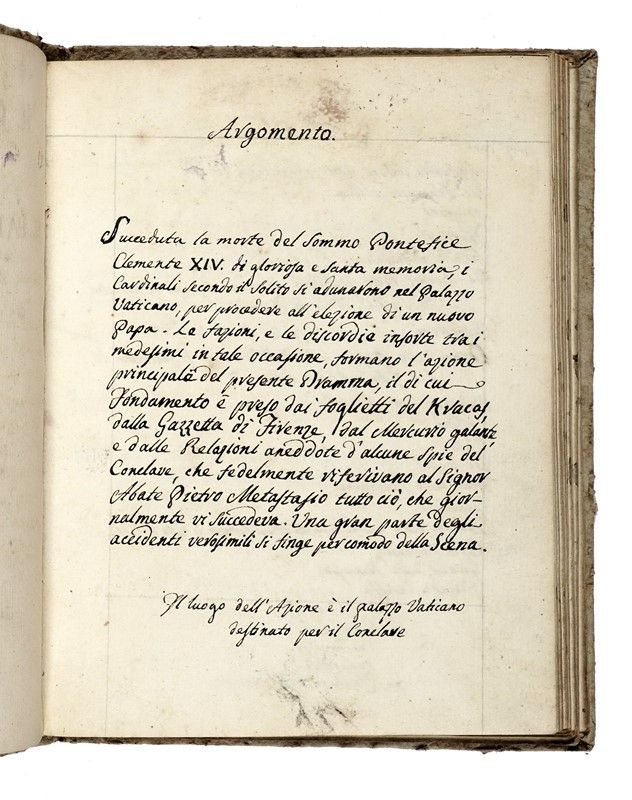 Argomento.
Succeduta la morte del Sommo Pontefice
Clemente XIV. di gloriosa e santa memoria, i
Cardinali secondo il solito si adunarono nel Palazzo
Vaticano, per procedere all'elezione di un nuovo
Papa. Le fazioni, e le discordie insorte tra i
medesimi in tale occasione, formano l'azione
principale del presente Dramma, il di cui
Fondamento è preso dai foglietti del Kracas,
dalla Gazzetta di Firenze, dal Mercurio galante
e dalle Relazioni aneddote d'alcune spie del
Conclave, che fedelmente riferivano al Signor
Abate Pietro Metastasio tutto ciò, che gior-
nalmente vi succedeva. Una gran parte degli
accidenti verosimili si finge per comodo della Scena.
Il luogo dell'Azione è il palazzo Vaticano
destinato per il Conclave